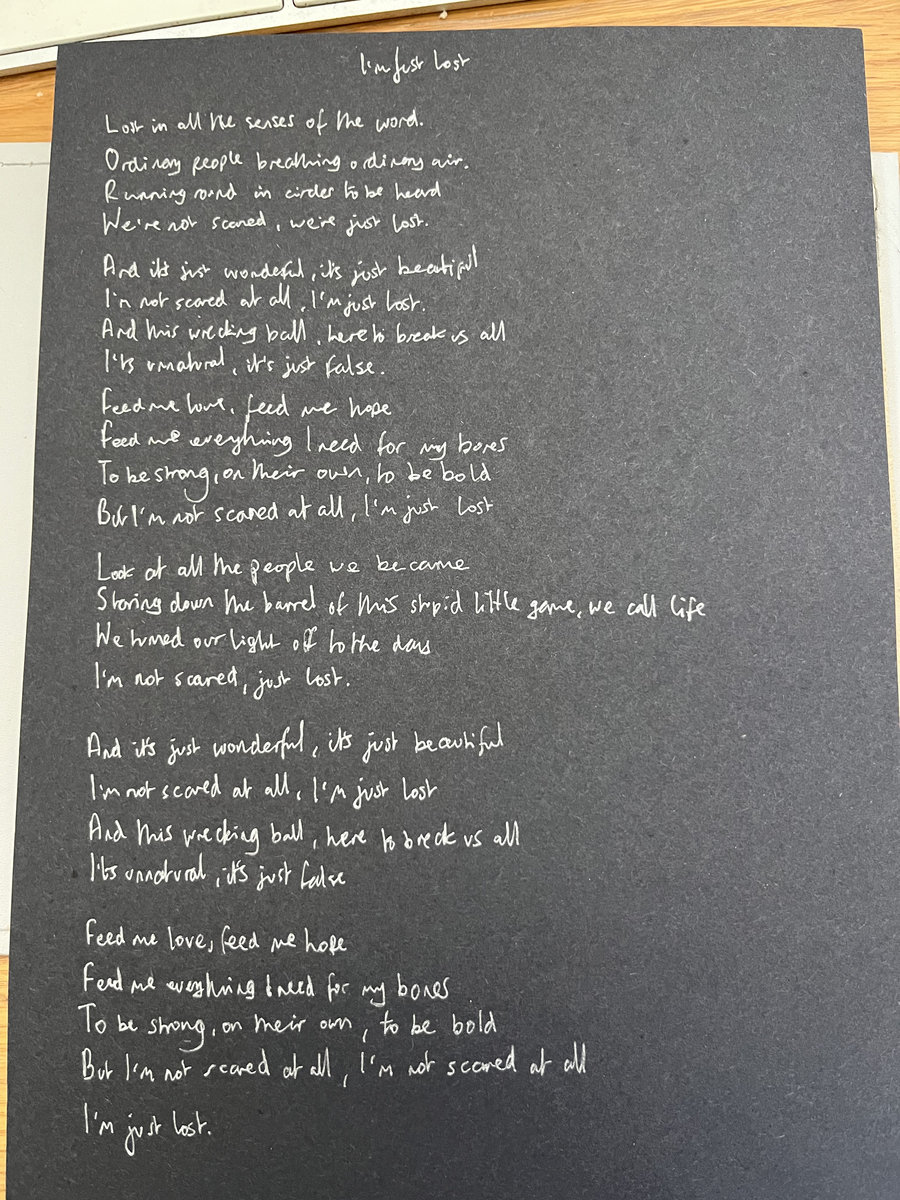 I'm just lost
Lost in all the senses of the word.
Ordinary people breathing ordinary air.
Running round in circles to be heard
We're not scared, we're just lost.
And it's just wonderful, it's just beautiful
I'm not scared at all, I'm just lost.
And this wrecking ball, here to break us all
It's unnatural, it's just false.
Feed me love, feed me hope
Feed me everything I need for my bones
To be strong, on their own, to be bold
But I'm not scared at all, I'm just lost
Look at all the people we became
Staring down the barrel of this stupid little game, we call life
We turned our light off to the days
I'm not scared, just lost.
And it's just wonderful, it's just beautiful
I'm not scared at all, I'm just lost
And this wrecking ball, here to break us all
It's unnatural, it's just false
Feed me love, feed me hope
Feed me everything I need for my bones
To be strong, on their own, to be bold
But I'm not scared at all, I'm not scared at all
I'm just lost.